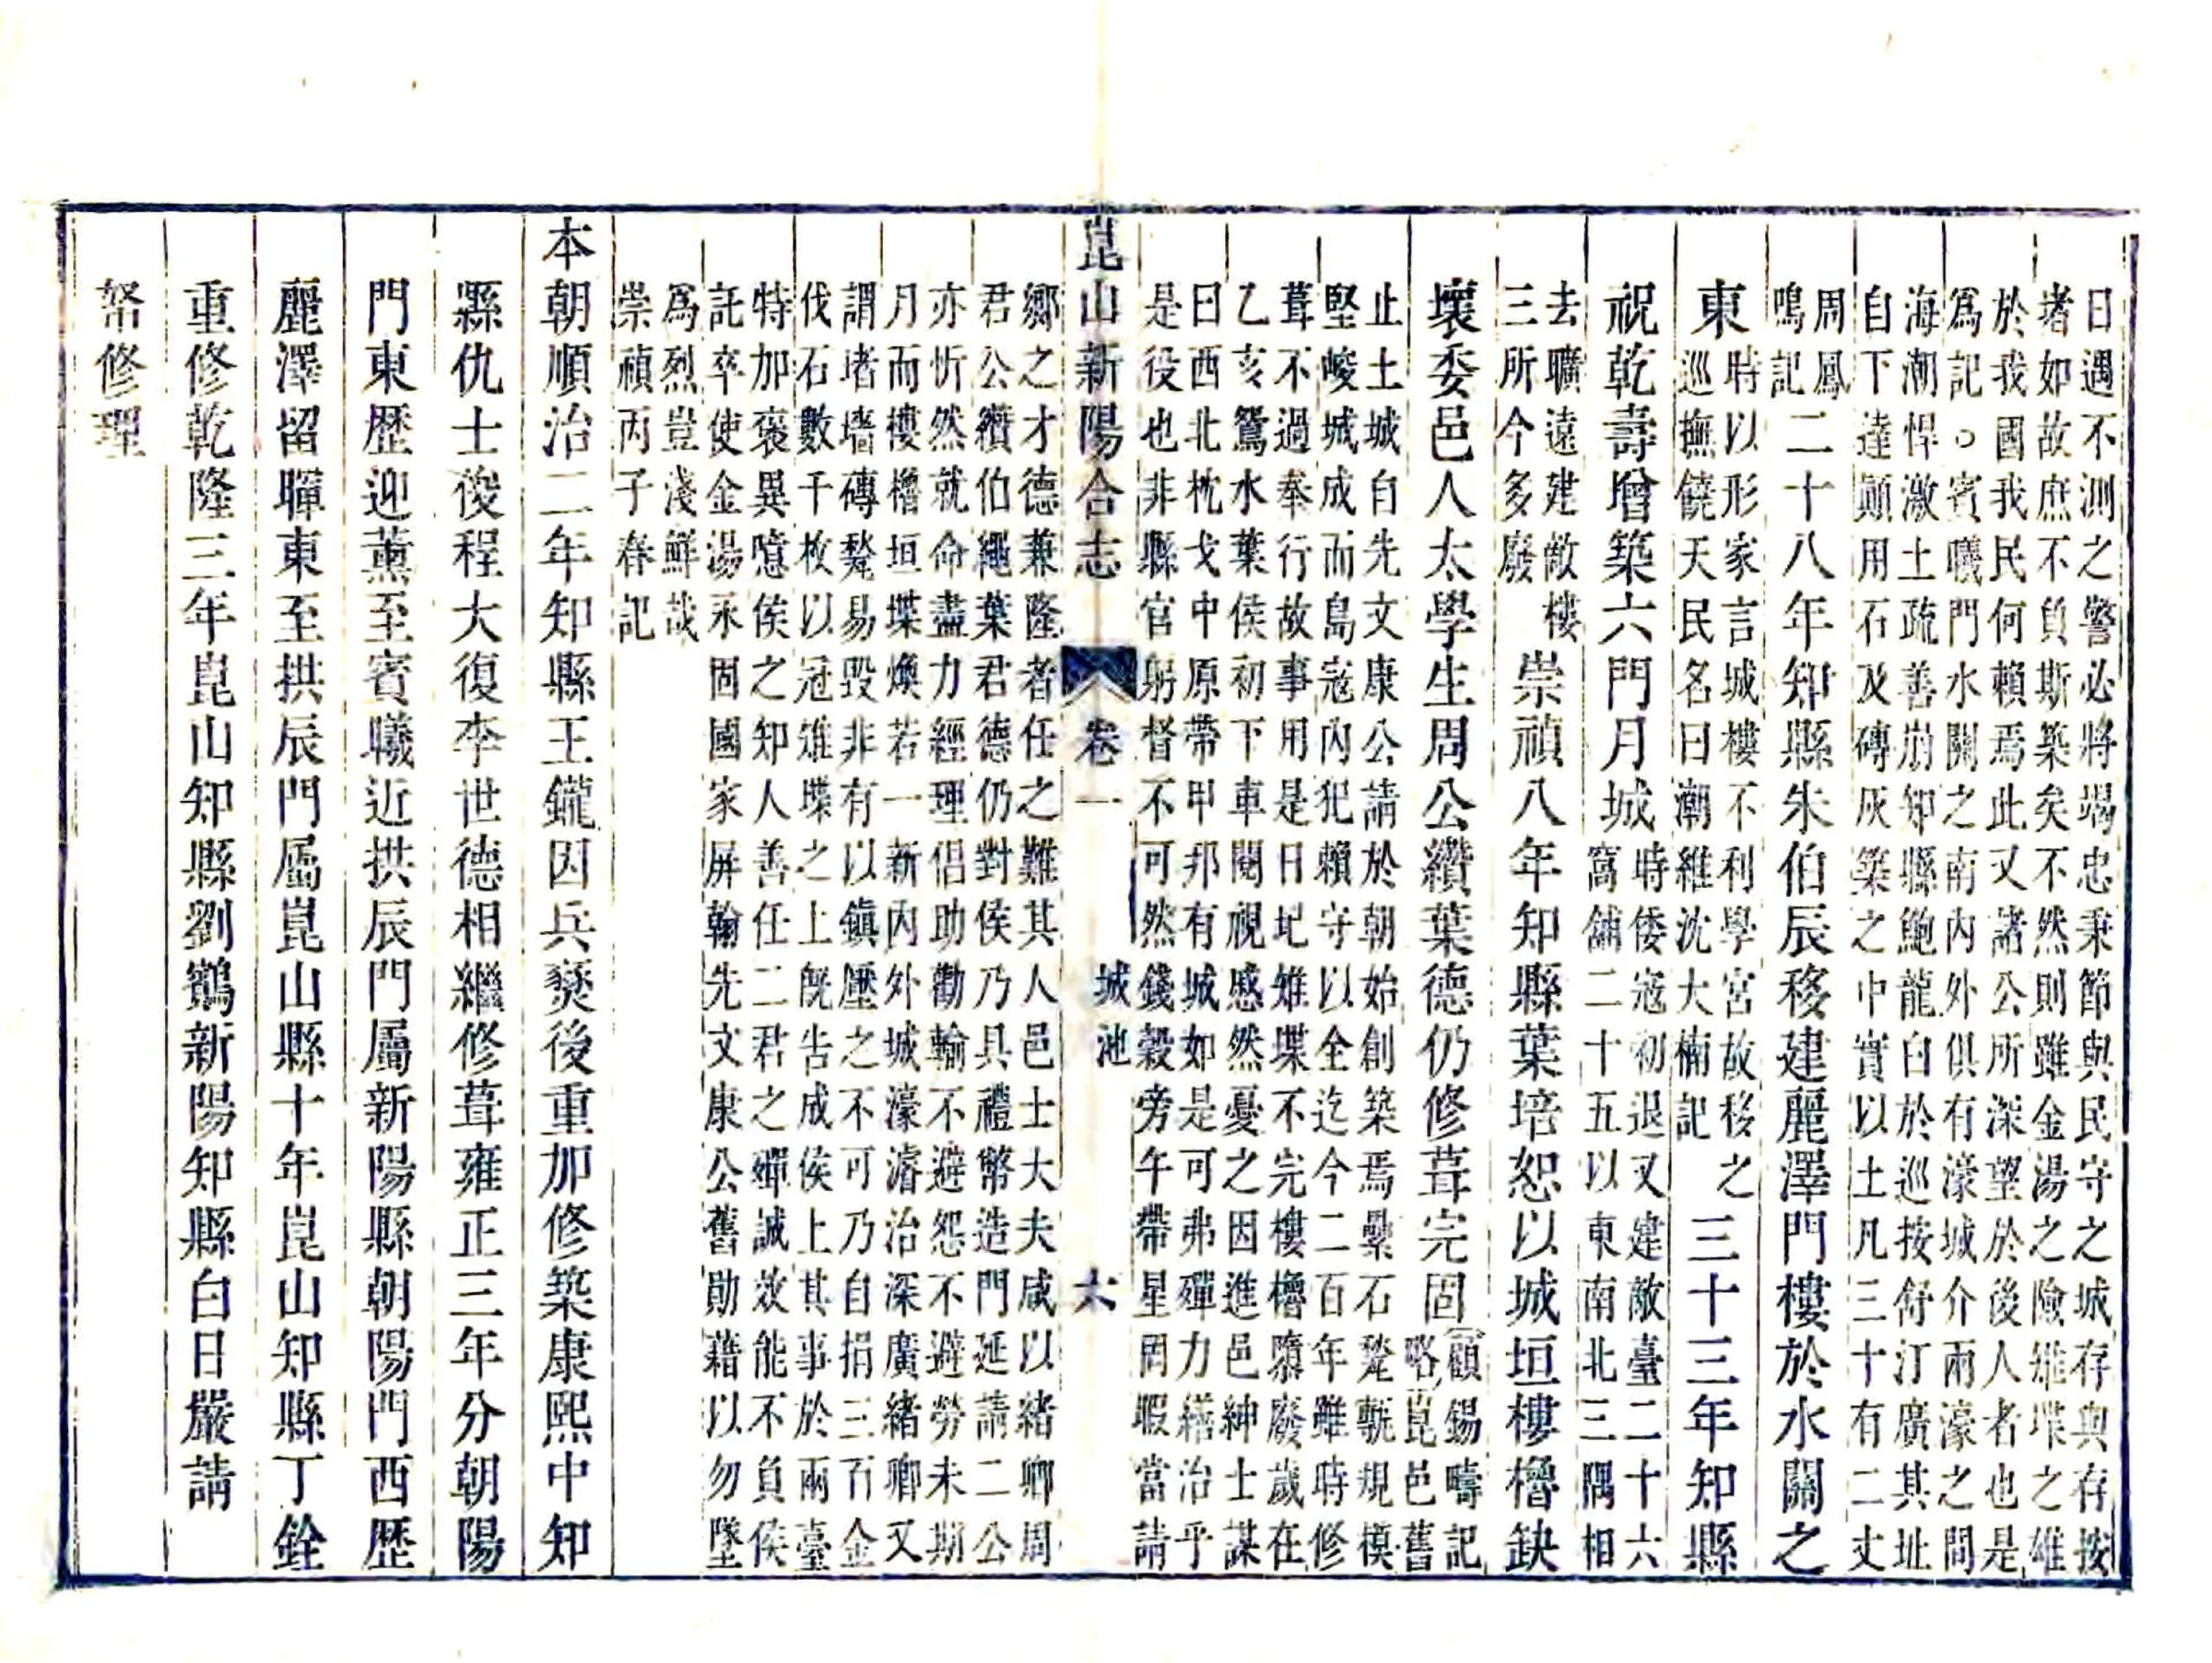 日遇不測之警必將竭忠秉節與民守之城存與存按
堵如故庶不負斯築矣不然則雖金湯之險雉堞之雄
於我國我民何賴焉此又諸公所深望於後人者也是
爲記○賓曦門水關之南内外俱有濠城介兩濠之間
海潮悍激土疏善崩知縣鮑龍白於巡按舒汀廣其址
自下達顛用石及磚灰築之中實以土凡三十有二丈
周鳳
鳴記
二十八年知縣朱伯辰移建麗澤門樓於水關之
東
時以形家言城樓不利學宮故移之
巡撫饒天民名曰潮維沈大楠記
三十三年知縣
祝乾壽增築六門月城
時倭寇初退又建敵臺二十六
窩舖二十五以東南北三隅相
去曠遠建敵樓
三所今多廢
崇禎八年知縣葉培恕以城垣樓櫓缺
壞委邑人太學生周公纘葉德仍修葺完固
顧錫疇記
略崑邑舊
止土城自先文康公請於朝始創築焉纍石甃甎規模
堅峻城成而島寇内犯賴守以全迄今二百年雖時修
葺不過奉行故事用是日圮雉堞不完樓櫓隳廢歲在
乙亥鴛水葉侯初下車閱視慼然憂之因進邑紳士謀
曰西北枕戈中原帶甲邦有城如是可弗殫力繕治乎
是役也非縣官躬督不可然錢穀旁午帶星罔暇當請
崑山新陽合志
卷一
城池
六
鄉之才德兼隆者任之難其人邑士大夫咸以緒卿周
君公纘伯繩葉君德仍對侯乃具禮幣造門延請二公
亦忻然就命盡力經理侶助勸輸不避怨不避勞未期
月而樓櫓垣堞煥若一新内外城濠濬治深廣緒卿又
謂堵墻磚甃易毀非有以鎮壓之不可乃自捐三百金
伐石數千枚以冠雉堞之上旣告成侯上其事於兩臺
特加褒異噫侯之知人善任二君之殫誠效能不負侯
託卒使金湯永固國家屏翰先文康公舊勛藉以勿墜
爲烈豈淺鮮哉
崇禎丙子春記
本朝順治二年知縣王鑨因兵燹後重加修築康熙中知
縣仇士俊程大復李世德相繼修葺雍正三年分朝陽
門東歷迎薰至賓曦近拱辰門屬新陽縣朝陽門西歷
麗澤留暉東至拱辰門屬崑山縣十年崑山知縣丁銓
重修乾隆三年崑山知縣劉鶴新陽知縣白日嚴請
帑修理